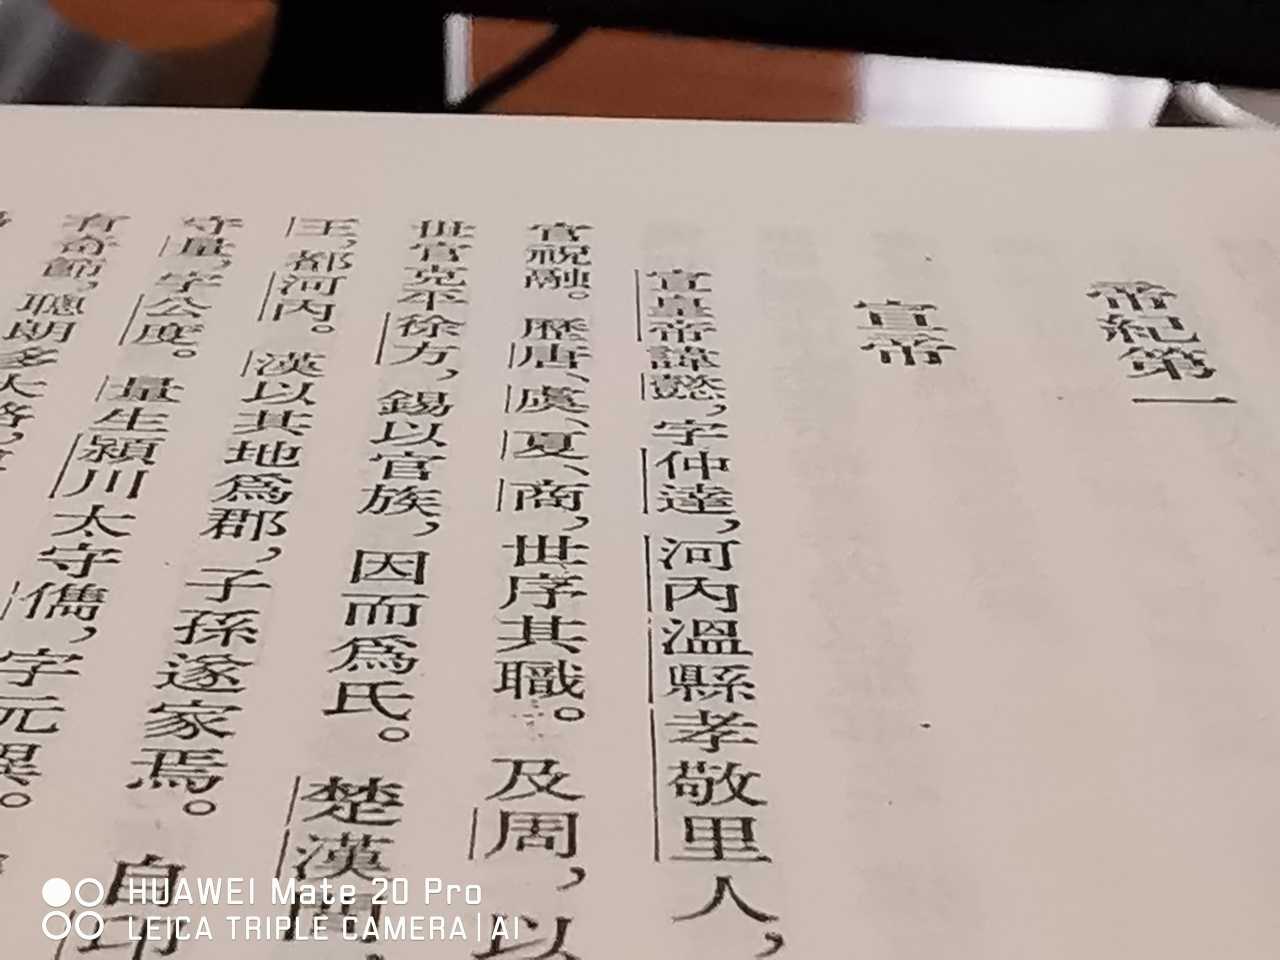 帝紀第一
宣帝
宣皇帝諱懿，字仲達，河內溫縣孝敬里人，
官祝融。歷唐、虞、夏、商，世序其職。及周，以
世官克平徐方，錫以官族，因而爲氏。楚漢間，
王，都河內。漢以其地爲郡，子孫遂家焉。自卬
守量，字公度。量生潁川太守儁，字元異。
有奇節，聰朗多大略，
HUAWEI Mate 20 Pro
LEICA TRIPLE CAMERA | AI